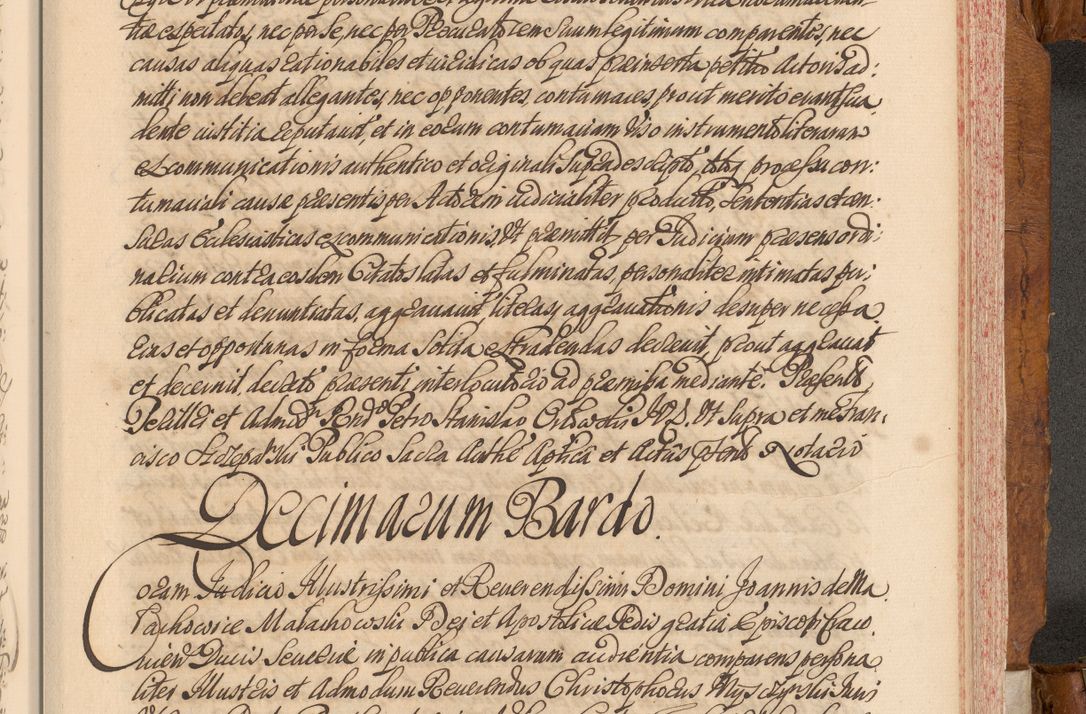 tiæ espectatos, nec per se, nec per Procuratorem suum legitimum comparentes, nec
causas aliquas rationabiles et iuridicas ob quas præinserta petitio Actoris ad:
mitti non debeat allegantes, nec opponentes, contumaces, prout merito erant sua
dente iustitia reputavit, et in eorum contumaciam viso instrumento literarum
excommunicationis authentico et originali supra descripto, processu con:
tumaciali causæ præsentis per Actorem iudicialiter producto, sententias et cen:
suras Ecclesiasticas excommunicationis, ut præmittit, per Judicium præsens ordi:
narium contra eosdem Citatos latas et fulminatas, personaliter intimatas pu:
blicatas et denuntiatas, aggravavit, literas aggravationis desuper necessa
rias et opportunas in forma solita extradendas decrevit, prout aggravat
et decernit decreto præsenti interlocutorio ad præmissa mediante. Præsente
et Admod Rndo Petro Stanislao Orłowski ut supra et me Fran:
cisco Publico Sacra Authe Aptica et Actus Notario
Decimarum Bardo.
Coram Judicio Illustrissimi et Reverendissimi Domini Joannis de Ma
łachowice Małachowski Dei et Apostolicæ Sedis gratia Episcopi Craco
vien Ducis Severiæ in publica causarum audientia comparens persona
liter Illustris et Admodum Reverendus Christophorus Juri